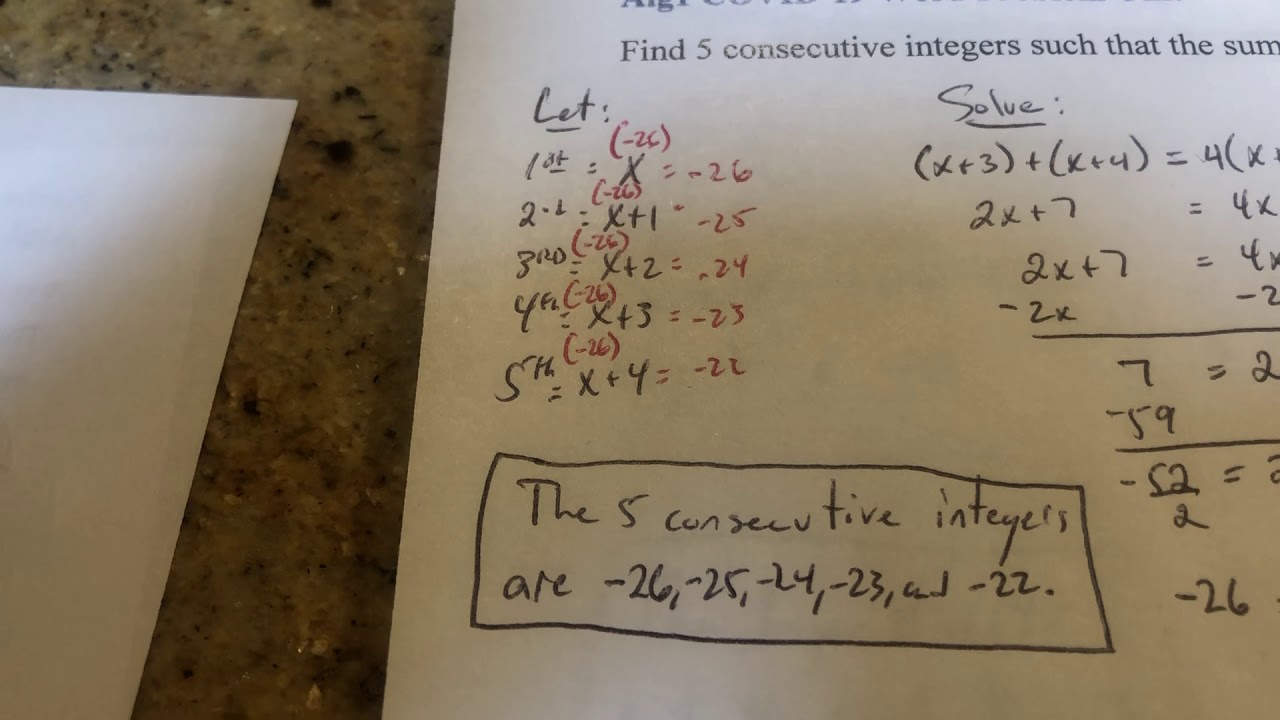 Find 5 consecutive integers such that the sum
Let:
(-26)
1st = x = -26
(-26)
2nd = x+1 = -25
(-26)
3RD = x+2 = -24
(-26)
4th = x+3 = -23
(-26)
5th = x+4 = -22
The 5 consecutive integers
are -26, -25, -24, -23, and -22.
Solve:
(x+3) + (x+4) = 4(x+
2x+7 = 4x
2x+7 = 4x
-2x -2
7 = 2
-59
-52 =
2
-26